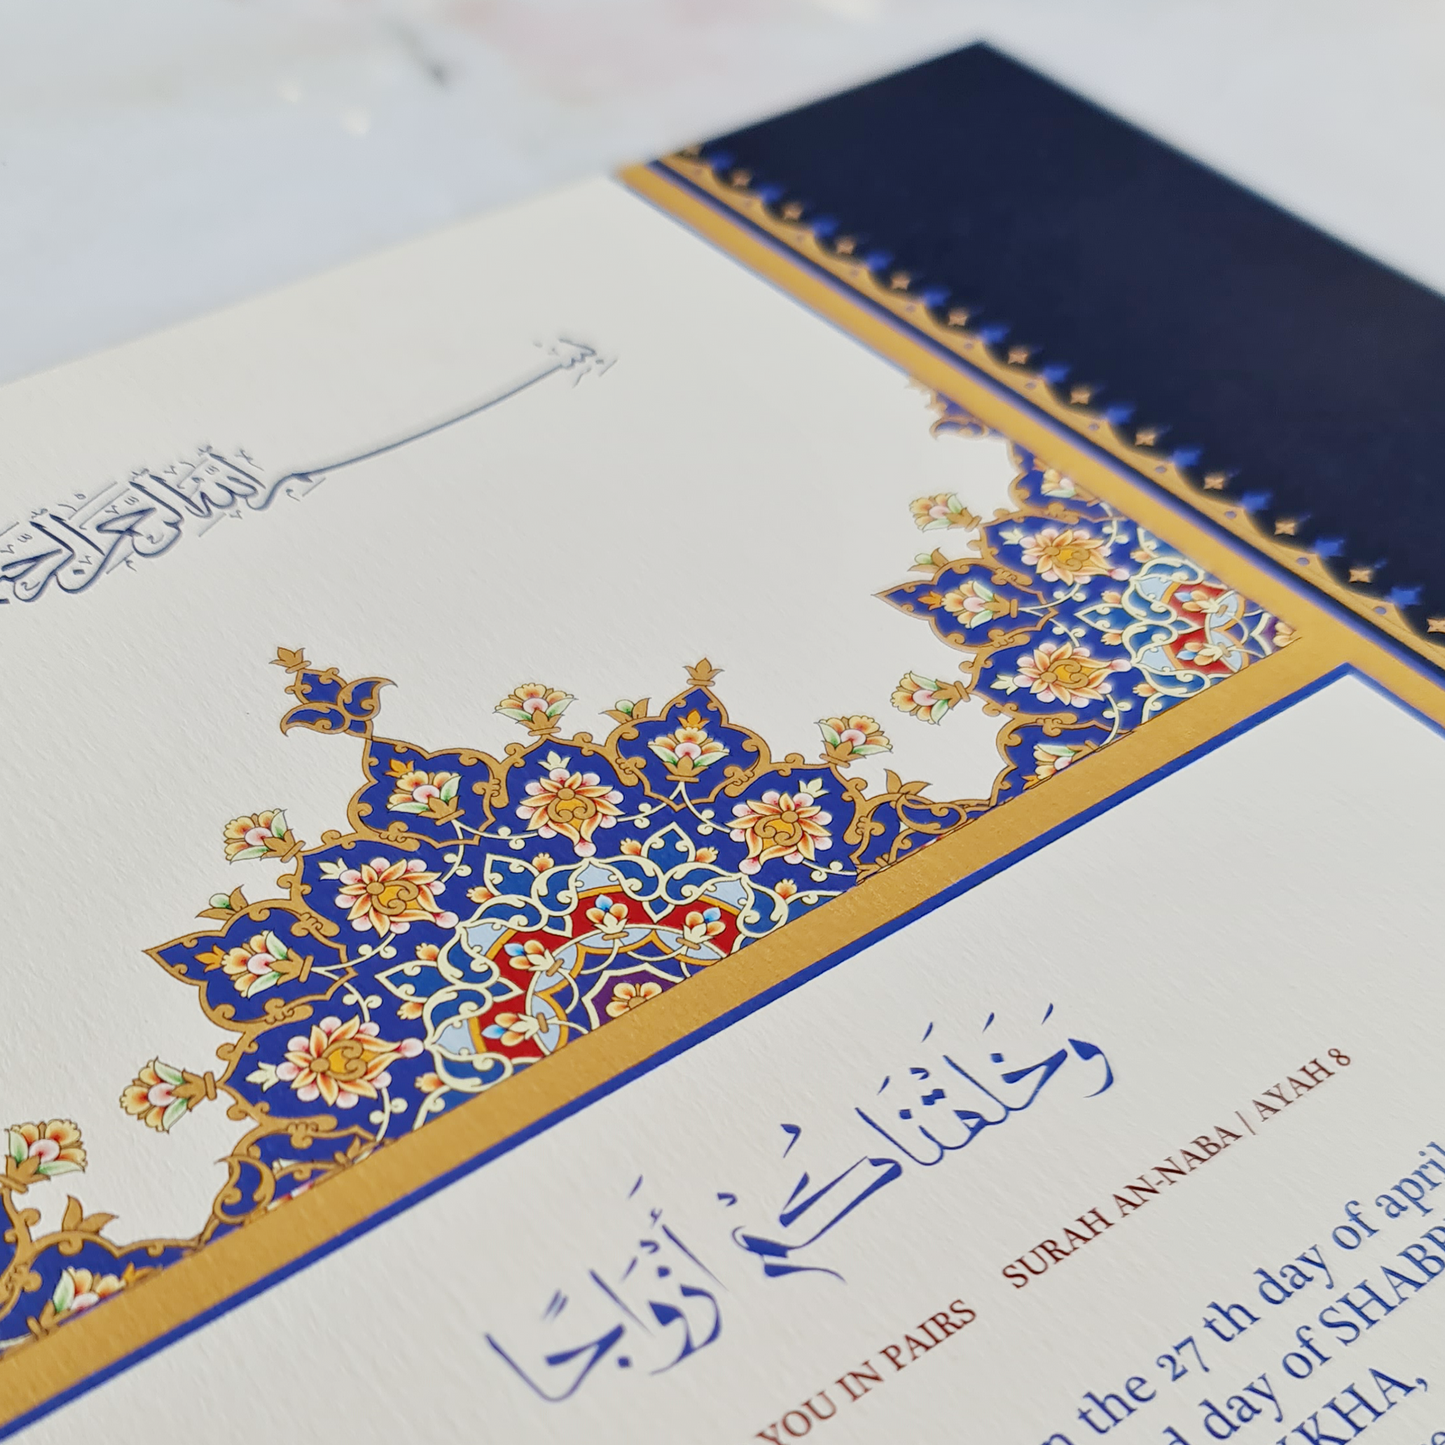 بسم الله الرحمن
وَخَلَقْنَاكُمْ أَزْوَاجًا
YOU IN PAIRS SURAH AN-NABA / AYAH 8
the 27 th day of april
day of